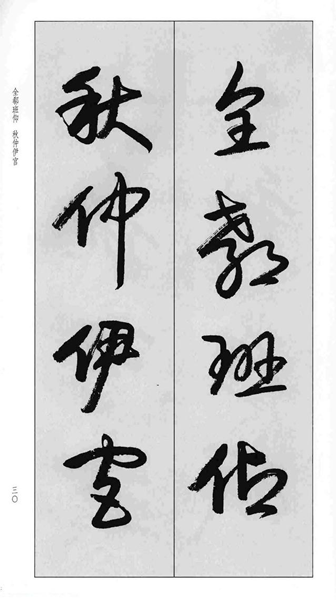 全郗班仰
秋仲伊宫
全郗班仰 秋仲伊宫
三〇